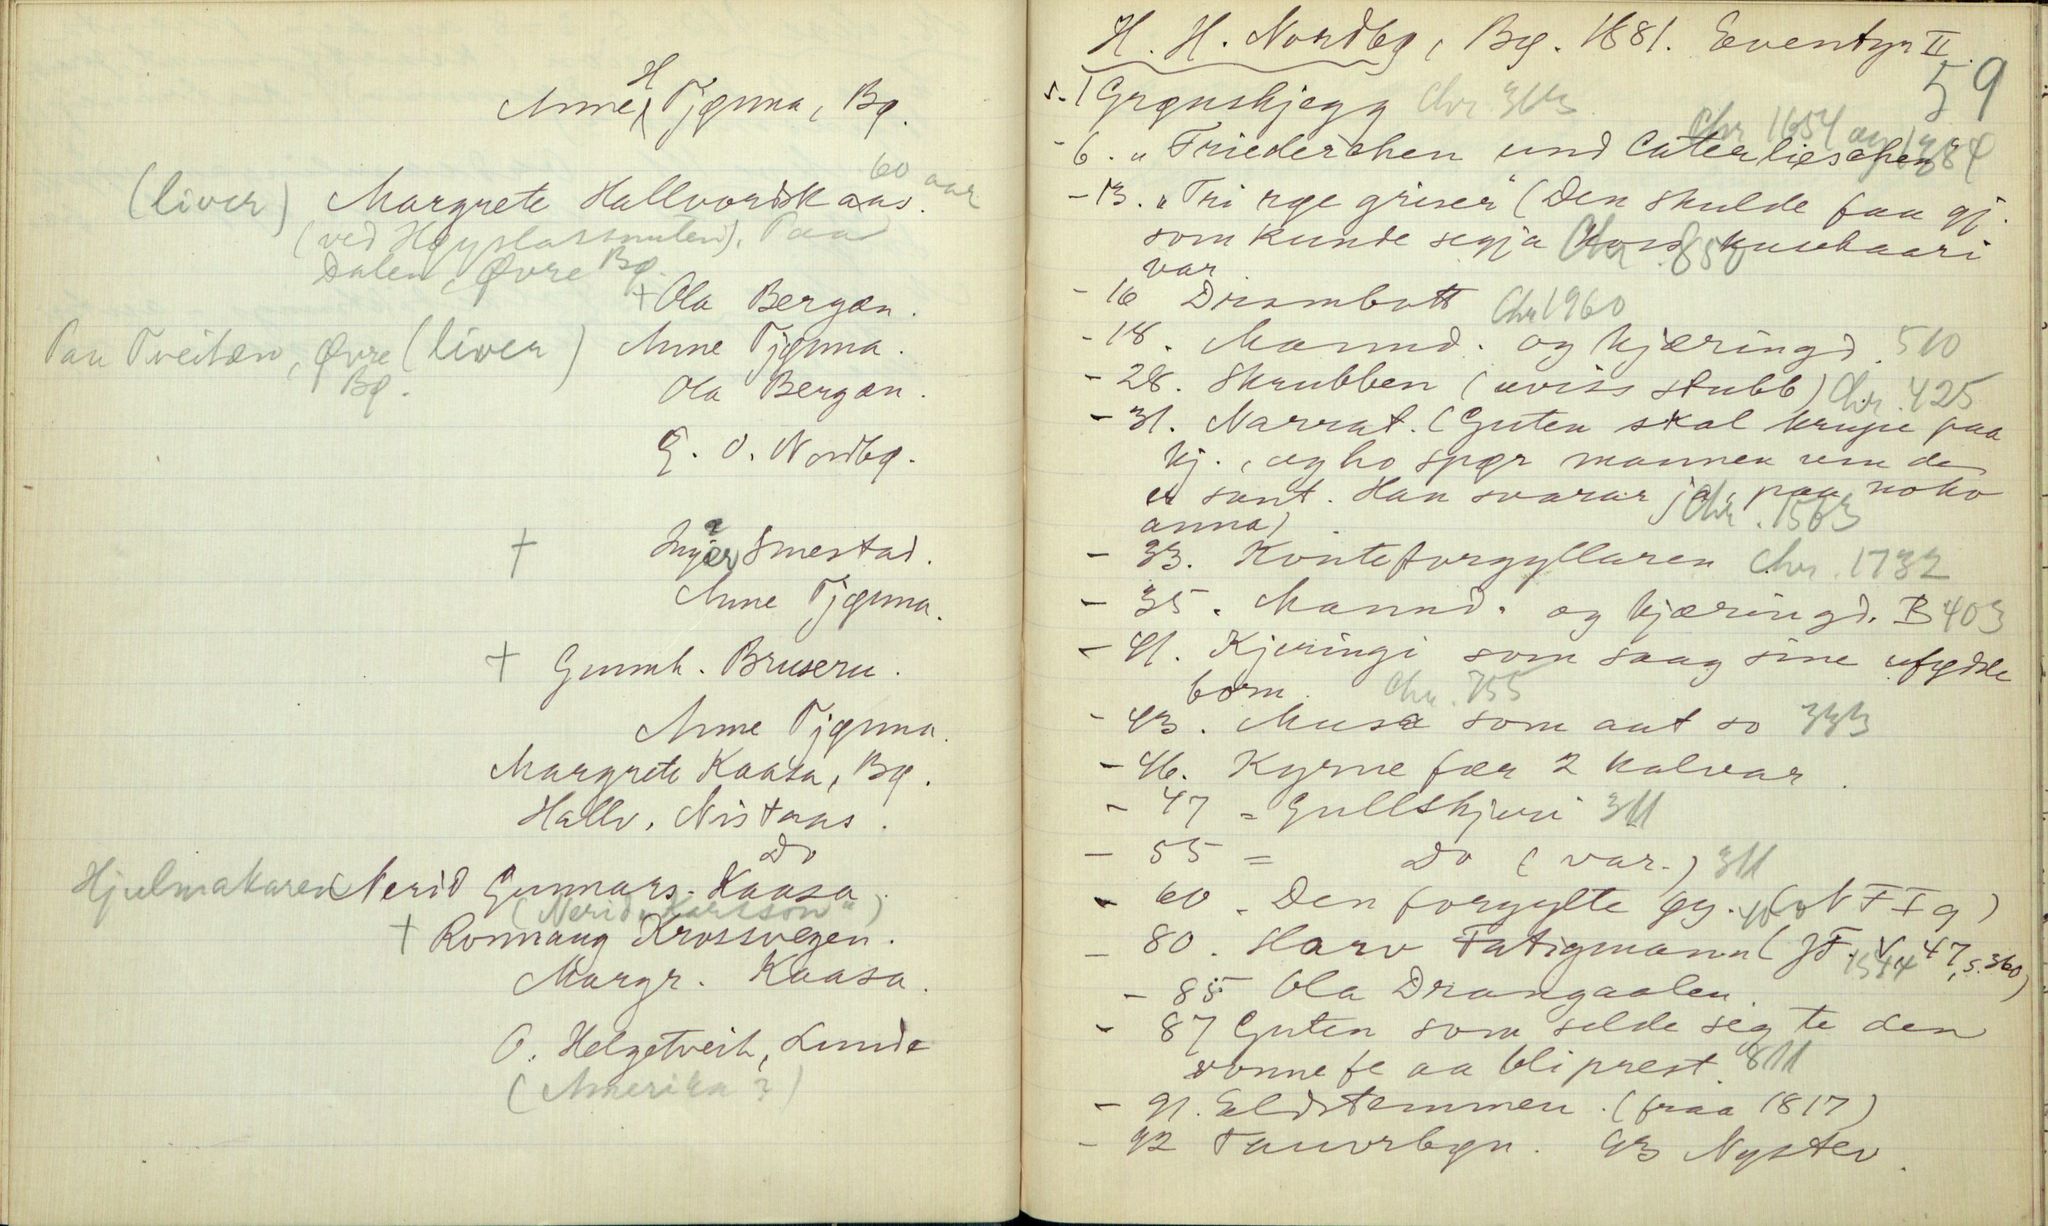 Anne H Tjønna, Bø.
(liver) Margrete Hallvordsk aas. 60 aar
(ved Høyslassmulen). Paa
Dalen, Øvre Bø.
+ Ola Bergan.
Paa Tveitan, Øvre (liver) Anne Tjønna.
Bø. Ola Bergan.
O. Nordbø.
+ Smestad.
Anne Tjønna.
+ Gunnh. Bruseru.
Anne Tjønna.
Margrete Kaasa, Bø.
Hallv. Nistaas.
Do
Hjulmakaren Nerid Gunnars. Kaasa.
(Nerid "Karsson")
+ Ronnaug Krossvegen.
Margr. Kaasa.
O. Helgetveit, Lunde
(Amerika?)
H. H. Nordbø, Bø. 1881. Eventyr II.
59
s. 1 Grønskjegg Chr 313
Chr 1654 og 1384
- 6. "Friederchen und Caterlieschen"
- 13. "Tri rge griser" (Den skulde faa gj.
som kunde segja koss kusehaari
var Chr. 850
- 16 Drambott Chr 1960
- 18. Mannd. og kjæringd. 510
- 28. Skrubben (uviss stubb) Chr. 425
- 31. Narrat. (Guten skal krupe paa
kj., og ho spør mannen um de
er sant. Han svarar ja, paa noko
anna) Chr. 1563
- 33. Konteforgyllaren Chr. 1732
- 35. Mannd. og kjæringd. B 403
- 41. Kjeringi som saag sine ufødde
born. Chr. 755
- 43. Musa som aat so 333
- 46. Kyrne fær 2 kalvar.
- 47 = Gullskjeri 311
- 55 = Do (var.) 311
- 60. Den forgylte øy. 400 (N F I 9)
- 80. Harv Fatigmann (JF. V, 47, s. 360)
1544
- 85 Ola Drangaalen.
- 87 Guten som selde seg te den
vonne fe aa bli prest. 811
- 91. Eldstemmen. (fraa 1817)
- 92 Fauvrbøn. 93 Nystev.